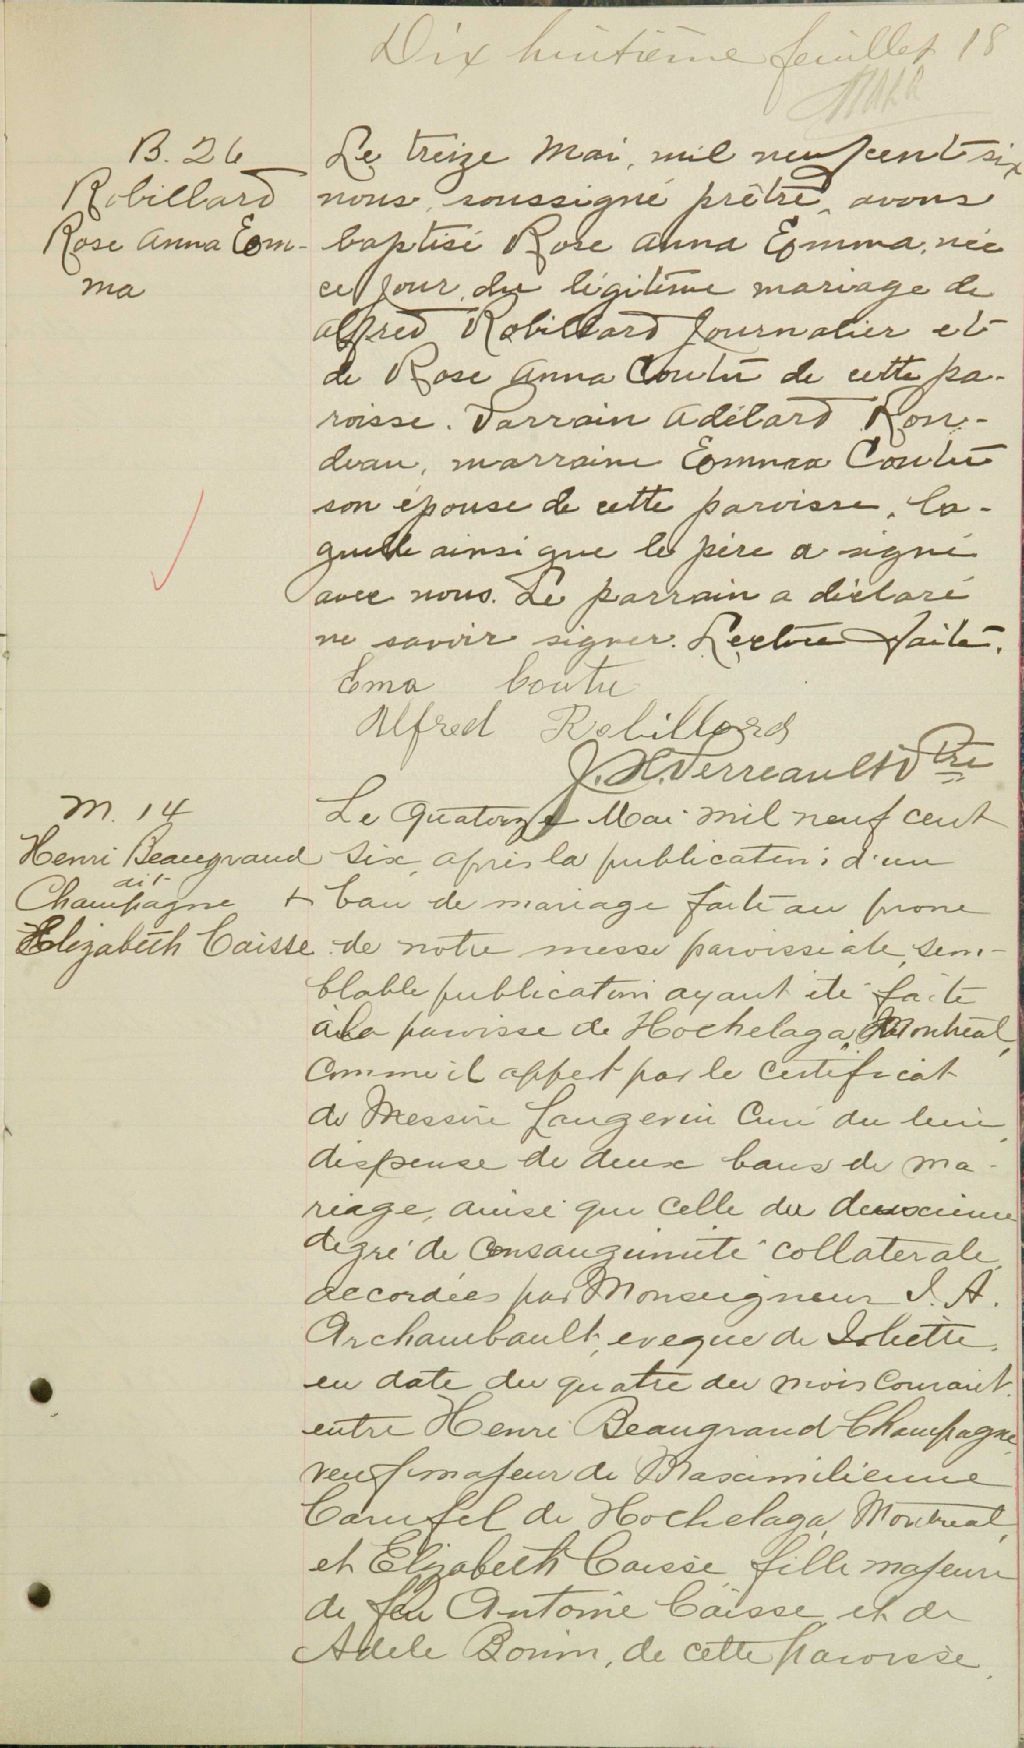 Dix huitième feuillet 18
B. 26
Robillard
Rose Anna Em-
ma
Le treize Mai, mil neuf cent six
nous, soussigné prêtre, avons
baptisé Rose Anna Emma, née
ce jour, du légitime mariage de
Alfred Robillard Journalier et
de Rose Anna Coutu de cette pa-
roisse. Parrain Adélard Ron-
deau, marraine Emma Coutu
son épouse de cette paroisse, la-
quelle ainsi que le père a signé
avec nous. Le parrain a déclaré
ne savoir signer. Lecture faite.
Ema Coutu
Alfred Robillard
J. H. Perreault Ptre
M. 14
Henri Beaugrand
dit
Champagne +
Elizabeth Caisse
Le Quatorze Mai mil neuf cent
six, après la publication d'un
ban de mariage faite au prone
de notre messe paroissiale, sem-
blable publication ayant été faite
à la paroisse de Hochelaga, Montréal,
comme il appert par le certificat
de Messire Langevin Curé du lieu,
dispense de deux bans de ma-
riage, ainsi que celle du deuxieme
degré de consanguinité collaterale,
accordées par Monseigneur J. A.
Archambault, eveque de Joliette,
en date du quatre du mois courant,
entre Henri Beaugrand-Champagne,
veuf majeur de Maximilienne
Carufel de Hochelaga, Montreal,
et Elizabeth Caisse fille majeure
de feu Antoine Caisse et de
Adele Bonin, de cette paroisse.